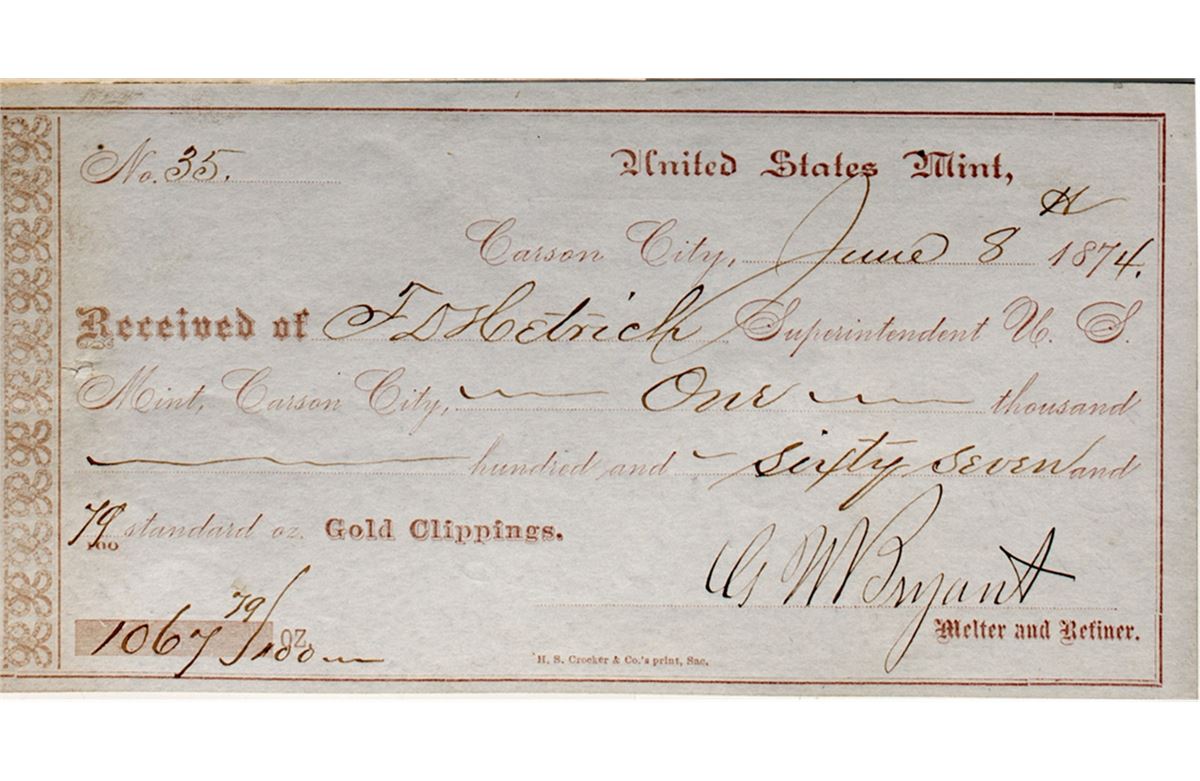 No. 35.
United States Mint,
Carson City, June 8th 1874.
Received of F D Hetrich Superintendent U. S.
Mint, Carson City, — One — thousand
— hundred and - Sixty Seven and
79/100 standard oz. Gold Clippings.
G W Bryant
1067 79/100 oz.
Melter and Refiner.
H. S. Crocker & Co.'s print, Sac.